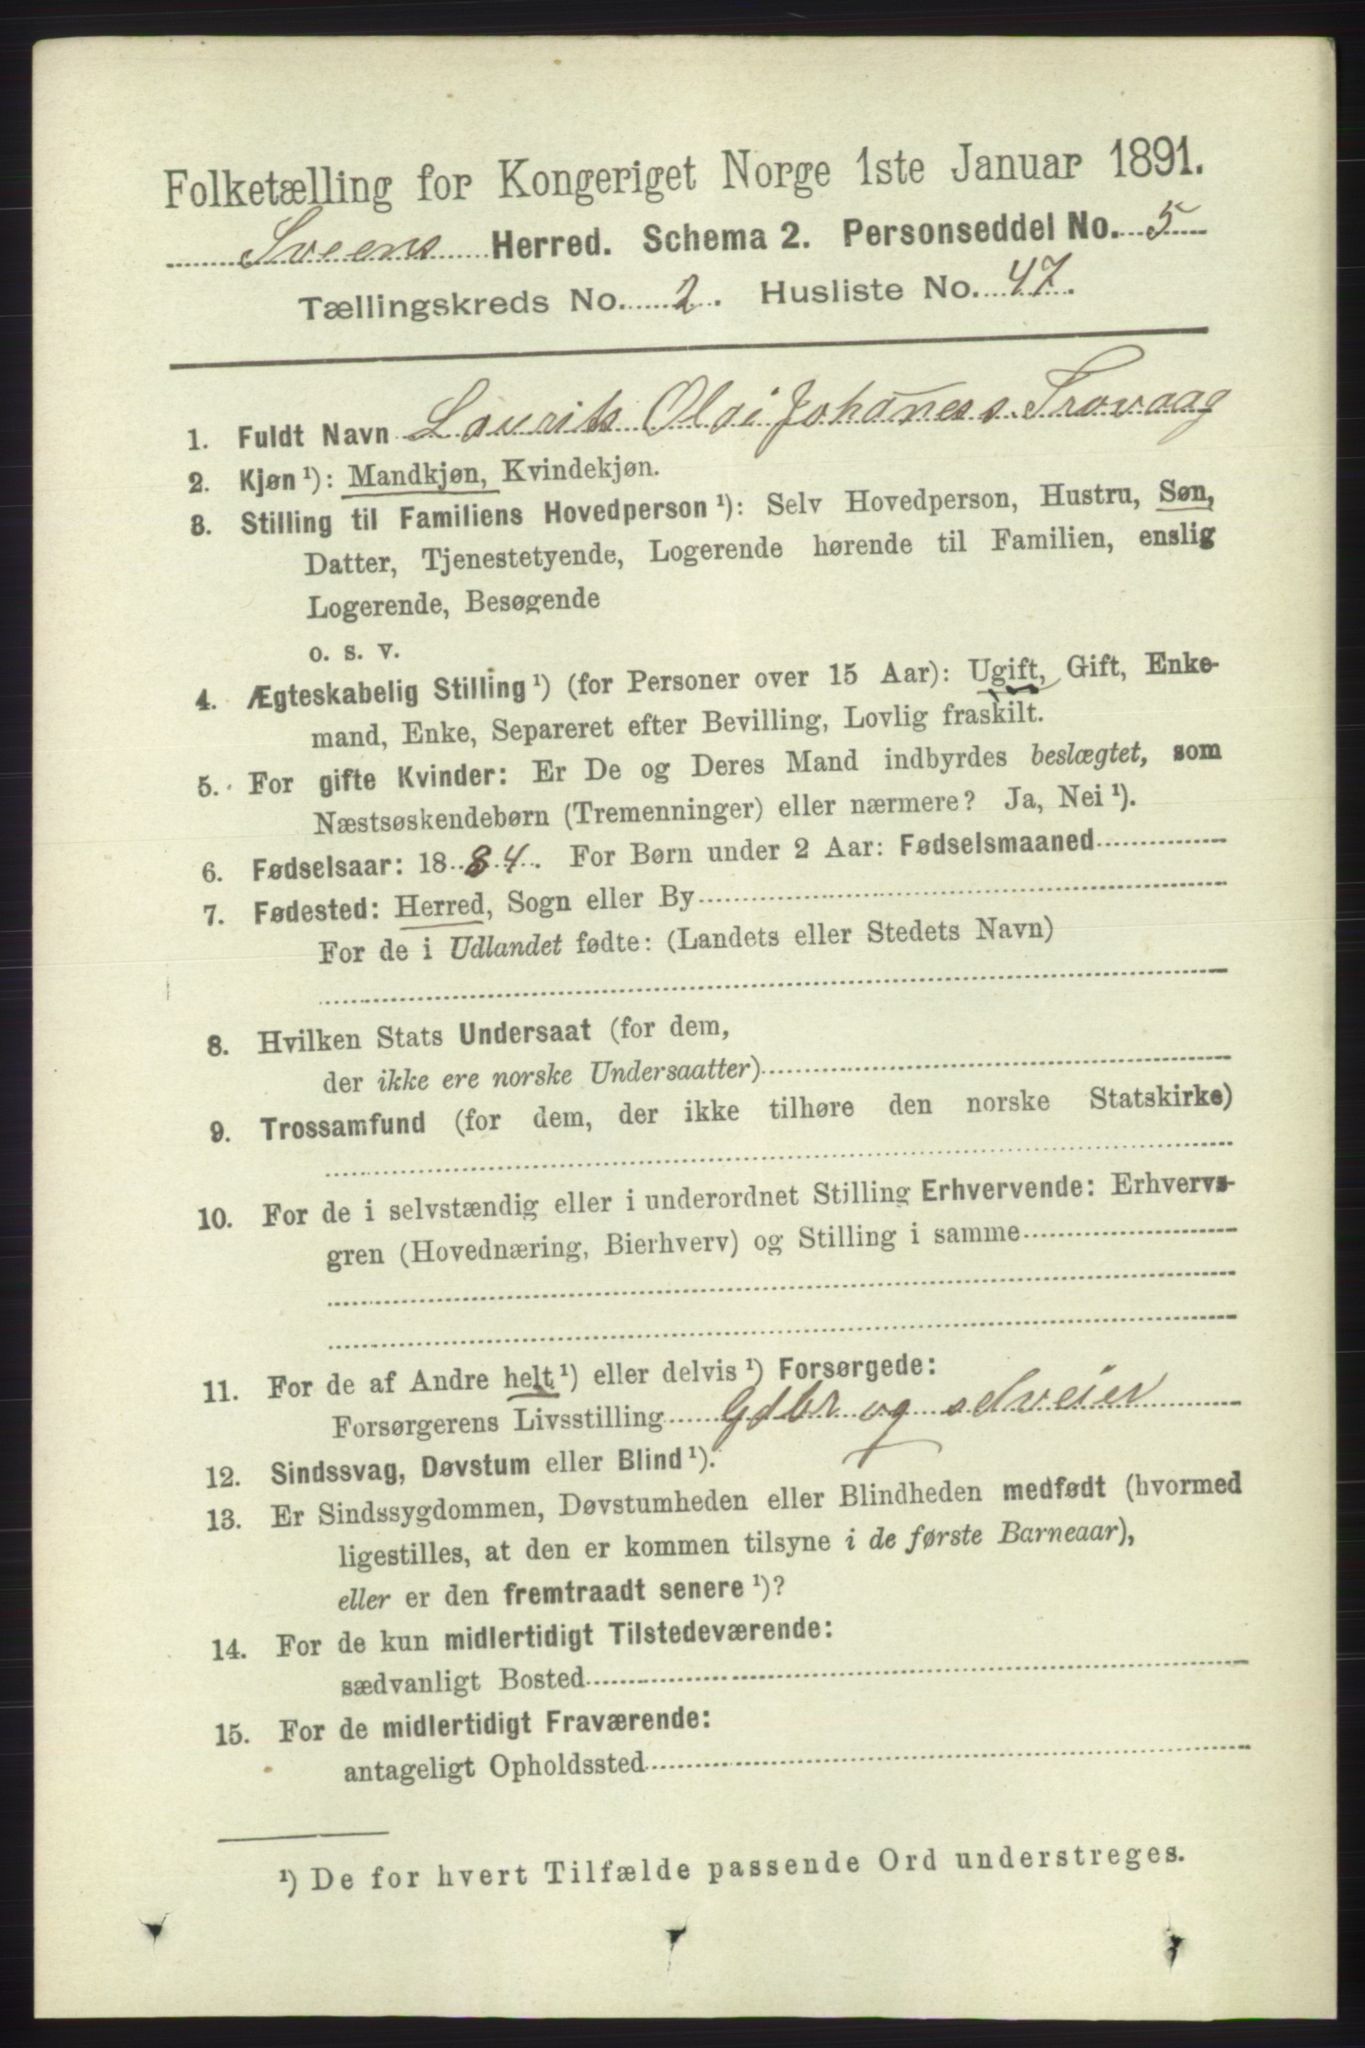 Folketælling for Kongeriget Norge 1ste Januar 1891.
Sveens Herred. Schema 2. Personseddel No. 5
Tællingskreds No. 2. Husliste No. 47.
1. Fuldt Navn Lourits Olai Johaness. Trovaag
2. Kjøn ¹): Mandkjøn, Kvindekjøn.
3. Stilling til Familiens Hovedperson ¹): Selv Hovedperson, Hustru, Søn,
Datter, Tjenestetyende, Logerende hørende til Familien, enslig
Logerende, Besøgende
o. s. v.
4. Ægteskabelig Stilling ¹) (for Personer over 15 Aar): Ugift, Gift, Enke-
mand, Enke, Separeret efter Bevilling, Lovlig fraskilt.
5. For gifte Kvinder: Er De og Deres Mand indbyrdes beslægtet, som
Næstsøskendebørn (Tremenninger) eller nærmere? Ja, Nei ¹).
6. Fødselsaar: 1884. For Børn under 2 Aar: Fødselsmaaned
7. Fødested: Herred, Sogn eller By
For de i Udlandet fødte: (Landets eller Stedets Navn)
8. Hvilken Stats Undersaat (for dem,
der ikke ere norske Undersaatter)
9. Trossamfund (for dem, der ikke tilhøre den norske Statskirke)
10. For de i selvstændig eller i underordnet Stilling Erhvervende: Erhvervs-
gren (Hovednæring, Bierhverv) og Stilling i samme
11. For de af Andre helt ¹) eller delvis ¹) Forsørgede:
Forsørgerens Livsstilling Gdbr og selveier
12. Sindssvag, Døvstum eller Blind ¹).
13. Er Sindssygdommen, Døvstumheden eller Blindheden medfødt (hvormed
ligestilles, at den er kommen tilsyne i de første Barneaar),
eller er den fremtraadt senere ¹)?
14. For de kun midlertidigt Tilstedeværende:
sædvanligt Bosted
15. For de midlertidigt Fraværende:
antageligt Opholdssted
¹) De for hvert Tilfælde passende Ord understreges.